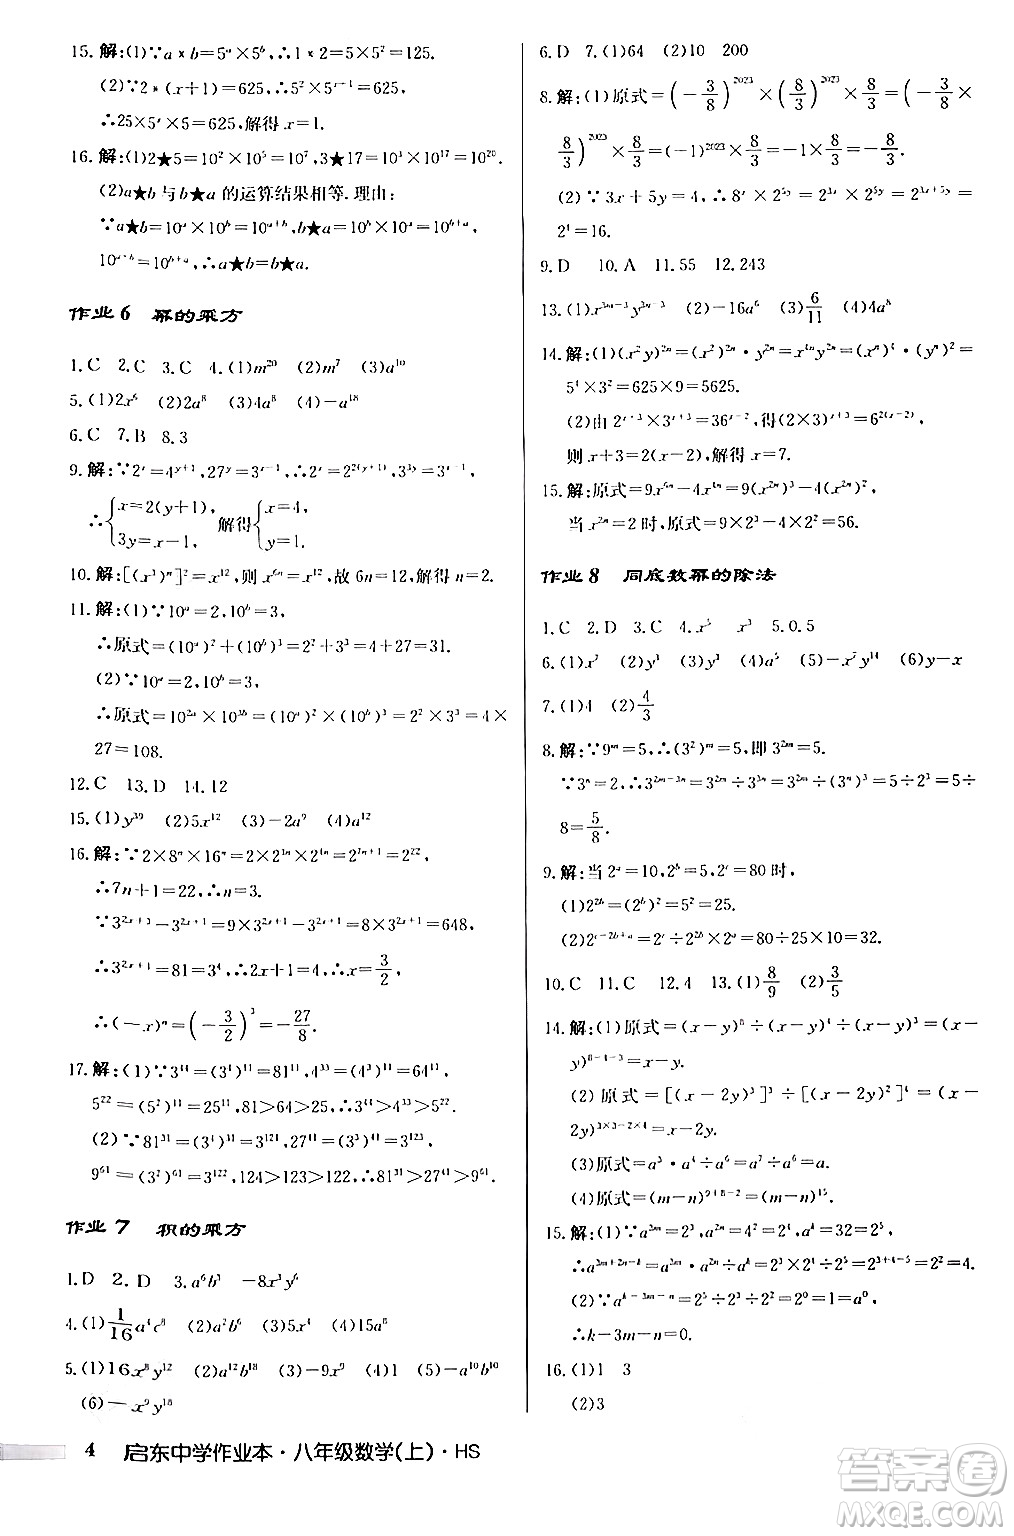 15.解:(1)∵a*b=5ᵃ×5ᵇ,∴1*2=5¹×5²=125.
(2)∵2*(x+1)=625,∴5²×5ˣ⁺¹=625,
∴25×5ˣ×5=625,解得x=1.
16.解:(1)2★5=10²×10⁵=10⁷,3★17=10³×10¹⁷=10²⁰.
(2)a★b与b★a的运算结果相等.理由:
∵a★b=10ᵃ×10ᵇ=10ᵃ⁺ᵇ,b★a=10ᵇ×
10ᵃ=10ᵇ⁺ᵃ,∴a★b=b★a.
作业6 幂的乘方
1.C 2.C 3.C 4.(1)m²⁰ (2)m⁷ (3)a¹⁰
5.(1)2x⁶ (2)2a⁸ (3)4a⁸ (4)-a¹⁸
6.C 7.B 8.3
9.解:∵2ˣ=4ʸ⁺¹,27ʸ=3ˣ⁻¹,∴2ˣ=2²⁽ʸ⁺¹⁾,3³ʸ=3ˣ⁻¹,
∴{x=2(y+1), 3y=x-1, 解得{x=4, y=1.
10.解:[(x³)ⁿ]²=x¹²,则x⁶ⁿ=x¹²,故6n=12,解得n=2.
11.解:(1)∵10ᵃ=2,10ᵇ=3,
∴原式=(10ᵃ)²+(10ᵇ)³=2²+3³=4+27=31.
(2)∵10ᵃ=2,10ᵇ=3,
∴原式=10²ᵃ×10³ᵇ=(10ᵃ)²×(10ᵇ)³=2²×3³=4×
27=108.
12.C 13.D 14.12
15.(1)y³⁹ (2)5x¹² (3)-2a⁷ (4)a¹²
16.解:∵2×8ⁿ×16ⁿ=2×2³ⁿ×2⁴ⁿ=2⁷ⁿ⁺¹=2²²,
∴7n+1=22,∴n=3.
∵3²ˣ⁺³-3²ˣ⁺¹=9×3²ˣ⁺¹-3²ˣ⁺¹=8×3²ˣ⁺¹=648,
∴3²ˣ⁺¹=81=3⁴,∴2x+1=4,∴x=3/2
∴(-x)ⁿ=(-3/2)³=-27/8.
17.解:(1)∵3⁴⁴=(3⁴)¹¹=81¹¹,4³³=(4³)¹¹=64¹¹,
5²²=(5²)¹¹=25¹¹,81>64>25,∴3⁴⁴>4³³>5²².
(2)∵81³¹=(3⁴)³¹=3¹²⁴,27⁴¹=(3³)⁴¹=3¹²³,
9⁶¹=(3²)⁶¹=3¹²²,124>123>122,∴81³¹>27⁴¹>9⁶¹.
作业7 积的乘方
1.D 2.D 3.a⁶b³ -8x³y⁶
4.(1)1/16 a⁴c⁸ (2)a²b⁶ (3)5x⁴ (4)15a⁸
5.(1)16x⁸y¹² (2)a¹²b¹⁸ (3)-9x⁹ (4)-a¹⁰b¹⁵
(6)-x⁹y¹⁸
6.D 7.(1)64 (2)10 200
8.解:(1)原式=(-3/8)²⁰²³×(8/3)²⁰²³×8/3=(-3/8×
8/3)²⁰²³×8/3=(-1)²⁰²³×8/3=-8/3.
(2)∵3x+5y=4,∴8ˣ×2⁵ʸ=2³ˣ×2⁵ʸ=2³ˣ⁺⁵ʸ=
2⁴=16.
9.D 10.A 11.55 12.243
13.(1)x³ᵐ⁻³y³ᵐ (2)-16a⁶ (3)6/11 (4)4a⁸
14.解:(1)(x²y)²ⁿ=(x²)²ⁿ·y²ⁿ=x⁴ⁿy²ⁿ=(xⁿ)⁴·(yⁿ)²=
5⁴×3²=625×9=5625.
(2)由2ˣ⁺³×3ˣ⁺³=36ˣ⁻²,得(2×3)ˣ⁺³=6²⁽ˣ⁻²⁾,
则x+3=2(x-2),解得x=7.
15.解:原式=9x⁶ⁿ-4x⁴ⁿ=9(x²ⁿ)³-4(x²ⁿ)².
当x²ⁿ=2时,原式=9×2³-4×2²=56.
作业8 同底数幂的除法
1.C 2.D 3.C 4.x⁵ x³ 5.0.5
6.(1)x⁷ (2)y³ (3)y³ (4)a⁵ (5)-x⁷y¹⁴ (6)y-x
7.(1)4 (2)4/3
8.解:∵9ᵐ=5,∴(3²)ᵐ=5,即3²ᵐ=5.
∵3ⁿ=2,∴3²ᵐ⁻³ⁿ=3²ᵐ÷3³ⁿ=3²ᵐ÷(3ⁿ)³=5÷2³=5÷
8=5/8.
9.解:当2ᵃ=3,2ᵇ=5,2ᶜ=80时,
(1)2²ᵇ=(2ᵇ)²=5²=25.
(2)2ᶜ⁻²ᵇ⁺ᵃ=2ᶜ÷2²ᵇ×2ᵃ=80÷25×3=9.6.
10.C 11.C 12.4 13.(1)8/9 (2)3/5
14.解:(1)原式=(x-y)⁸÷(x-y)⁴÷(x-y)³=(x-
y)⁸⁻⁴⁻³=x-y.
(2)原式=[(x-2y)³]³÷[(x-2y)²]⁴=(x-
2y)³ˣ³⁻²ˣ⁴=x-2y.
(3)原式=a³·a⁴÷a⁶=a⁷÷a⁶=a.
(4)原式=(m-n)⁹⁺⁸⁻²=(m-n)¹⁵.
15.解:(1)∵a³ᵐ=2³,a²ⁿ=2⁴,aᵏ=32=2⁵,
∴a³ᵐ⁺²ⁿ⁻ᵏ=a³ᵐ·a²ⁿ÷aᵏ=2³×2⁴÷2⁵=2³⁺⁴⁻⁵=2²=4.
(2)∵aᵏ⁻³ᵐ⁻ⁿ=2⁵÷2³÷2²=2⁰=1=a⁰,
∴k-3m-n=0.
16.(1)1 3
(2)3
4 启东中学作业本·八年级数学(上)·HS
答案圈
MXQE.COM